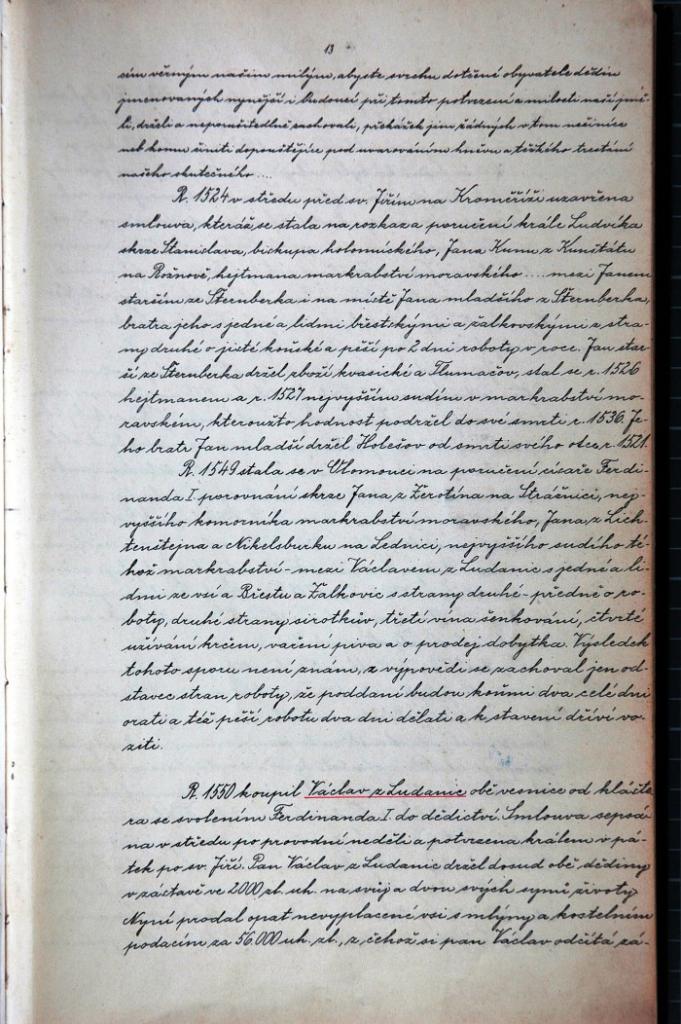 13
cím věrným našim milým, abyste svrchu dotčené obyvatele dědin
jmenovaných nynější i budoucí při tomto potvrzení a milosti naší jmě-
li, drželi a neporušitedlně zachovali, překážek jim žádných v tom nečiníce
neb komu činiti dopouštějíce pod uvarováním hněvu a těžkého trestání
našeho skutečného....
R. 1524 v středu před sv. Jiřím na Kroměříži uzavřena
smlouva, kteráž se stala na rozkaz a poručení krále Ludvíka
skrze Stanislava, biskupa holomúckého, Jana Kunu z Kunštátu
na Rožnově, hejtmana markrabství moravského.... mezi Janem
starším ze Šternberka i na místě Jana mladšího z Šternberka,
bratra jeho s jedné a lidmi břestskými a žalkovskými z stra-
ny druhé o jisté koňské a pěší po 2 dni roboty v roce. Jan star-
ší ze Šternberka držel zboží kvasické a Tlumačov, stal se r. 1526
hejtmanem a r. 1527 nejvyšším sudím v markrabství mo-
ravském, kteroužto hodnost podržel do své smrti r. 1536. Je-
ho bratr Jan mladší držel Holešov od smrti svého otce r. 1521.
R. 1549 stala se v Olomouci na poručení císaře Ferdi-
nanda I. porovnání skrze Jana z Žerotína na Strážnici, nej-
vyššího komorníka markrabství moravského, Jana z Lich-
tenštejna a Nikelsburku na Lednici, nejvyššího sudího té-
hož markrabství - mezi Václavem z Ludanic s jedné a li-
dmi ze vsi a Břestu a Žalkovic s strany druhé - předně o ro-
boty, druhé strany sirotkův, třetí vína šenkování, čtvrté
užívání krčem, vaření piva a o prodej dobytka. Výsledek
tohoto sporu není znám, z výpovědi se zachoval jen od-
stavec stran roboty, že poddaní budou koňmi dva celé dni
orati a též pěší robotu dva dni dělati a k stavení dříví vo-
ziti.
R. 1550 koupil Václav z Ludanic obě vesnice od klášte-
ra se svolením Ferdinanda I. do dědictví. Smlouva sepsá-
na v středu po provodní neděli a potvrzena králem v pá-
tek po sv. Jiří. Pan Václav z Ludanic držel dosud obě dědiny
v zástavě ve 2000 zl. uh. na svůj a dvou svých synů životy.
Nyní prodal opat nevyplacené vsi s mlýny a kostelním
podacím za 56.000 uh. zl., z čehož si pan Václav odčítá zá-